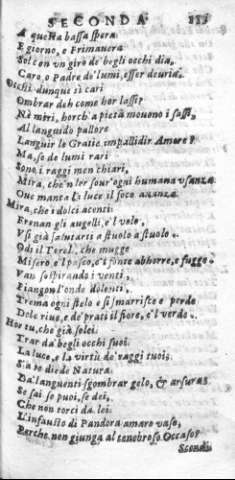 SECONDA
A questa bassa spera
E giorno, e Primauera
Sol con un giro de' begli occhi dia,
Caro, o Padre de' lumi, esser deuria.
Occhi dunque si cari
Ombrar deh come hor lassi?
Ne miri, horch' a pietà moueno i sassi,
Al languido pallore
Languir le Gratie impallidir Amore?
Ma, se de lumi rari
Sono i raggi men chiari,
Mira, che'n lor sour' ogni humana usanza
Que manta la luce il foco auanza
Mira, che i dolci acenti
Frenan gli augelli, e'l volo,
Vsi già salutarti a stuolo a stuolo.
Odi il Torel, che mugge
Misero e'l bosco, e'l fonte abhorre, e fugge.
Van sospirando i venti,
Piangon l'onde dolenti,
Trema ogni stelo e si smarrisce e perde
Dolc riue, e de' prati il fiore, e'l verde.
Hor tu, che già solei
Trar da begli occhi tuoi
La luce, e la virtù de' raggi tuoi,
die de Natura
Da languenti sgombrar gelo, & arsura
Se sai se puoi, se dei,
Che non torci da lei
L'infausto di Pandora amaro vaso,
Perche non giunga al tenebroso Occaso?
Scendi